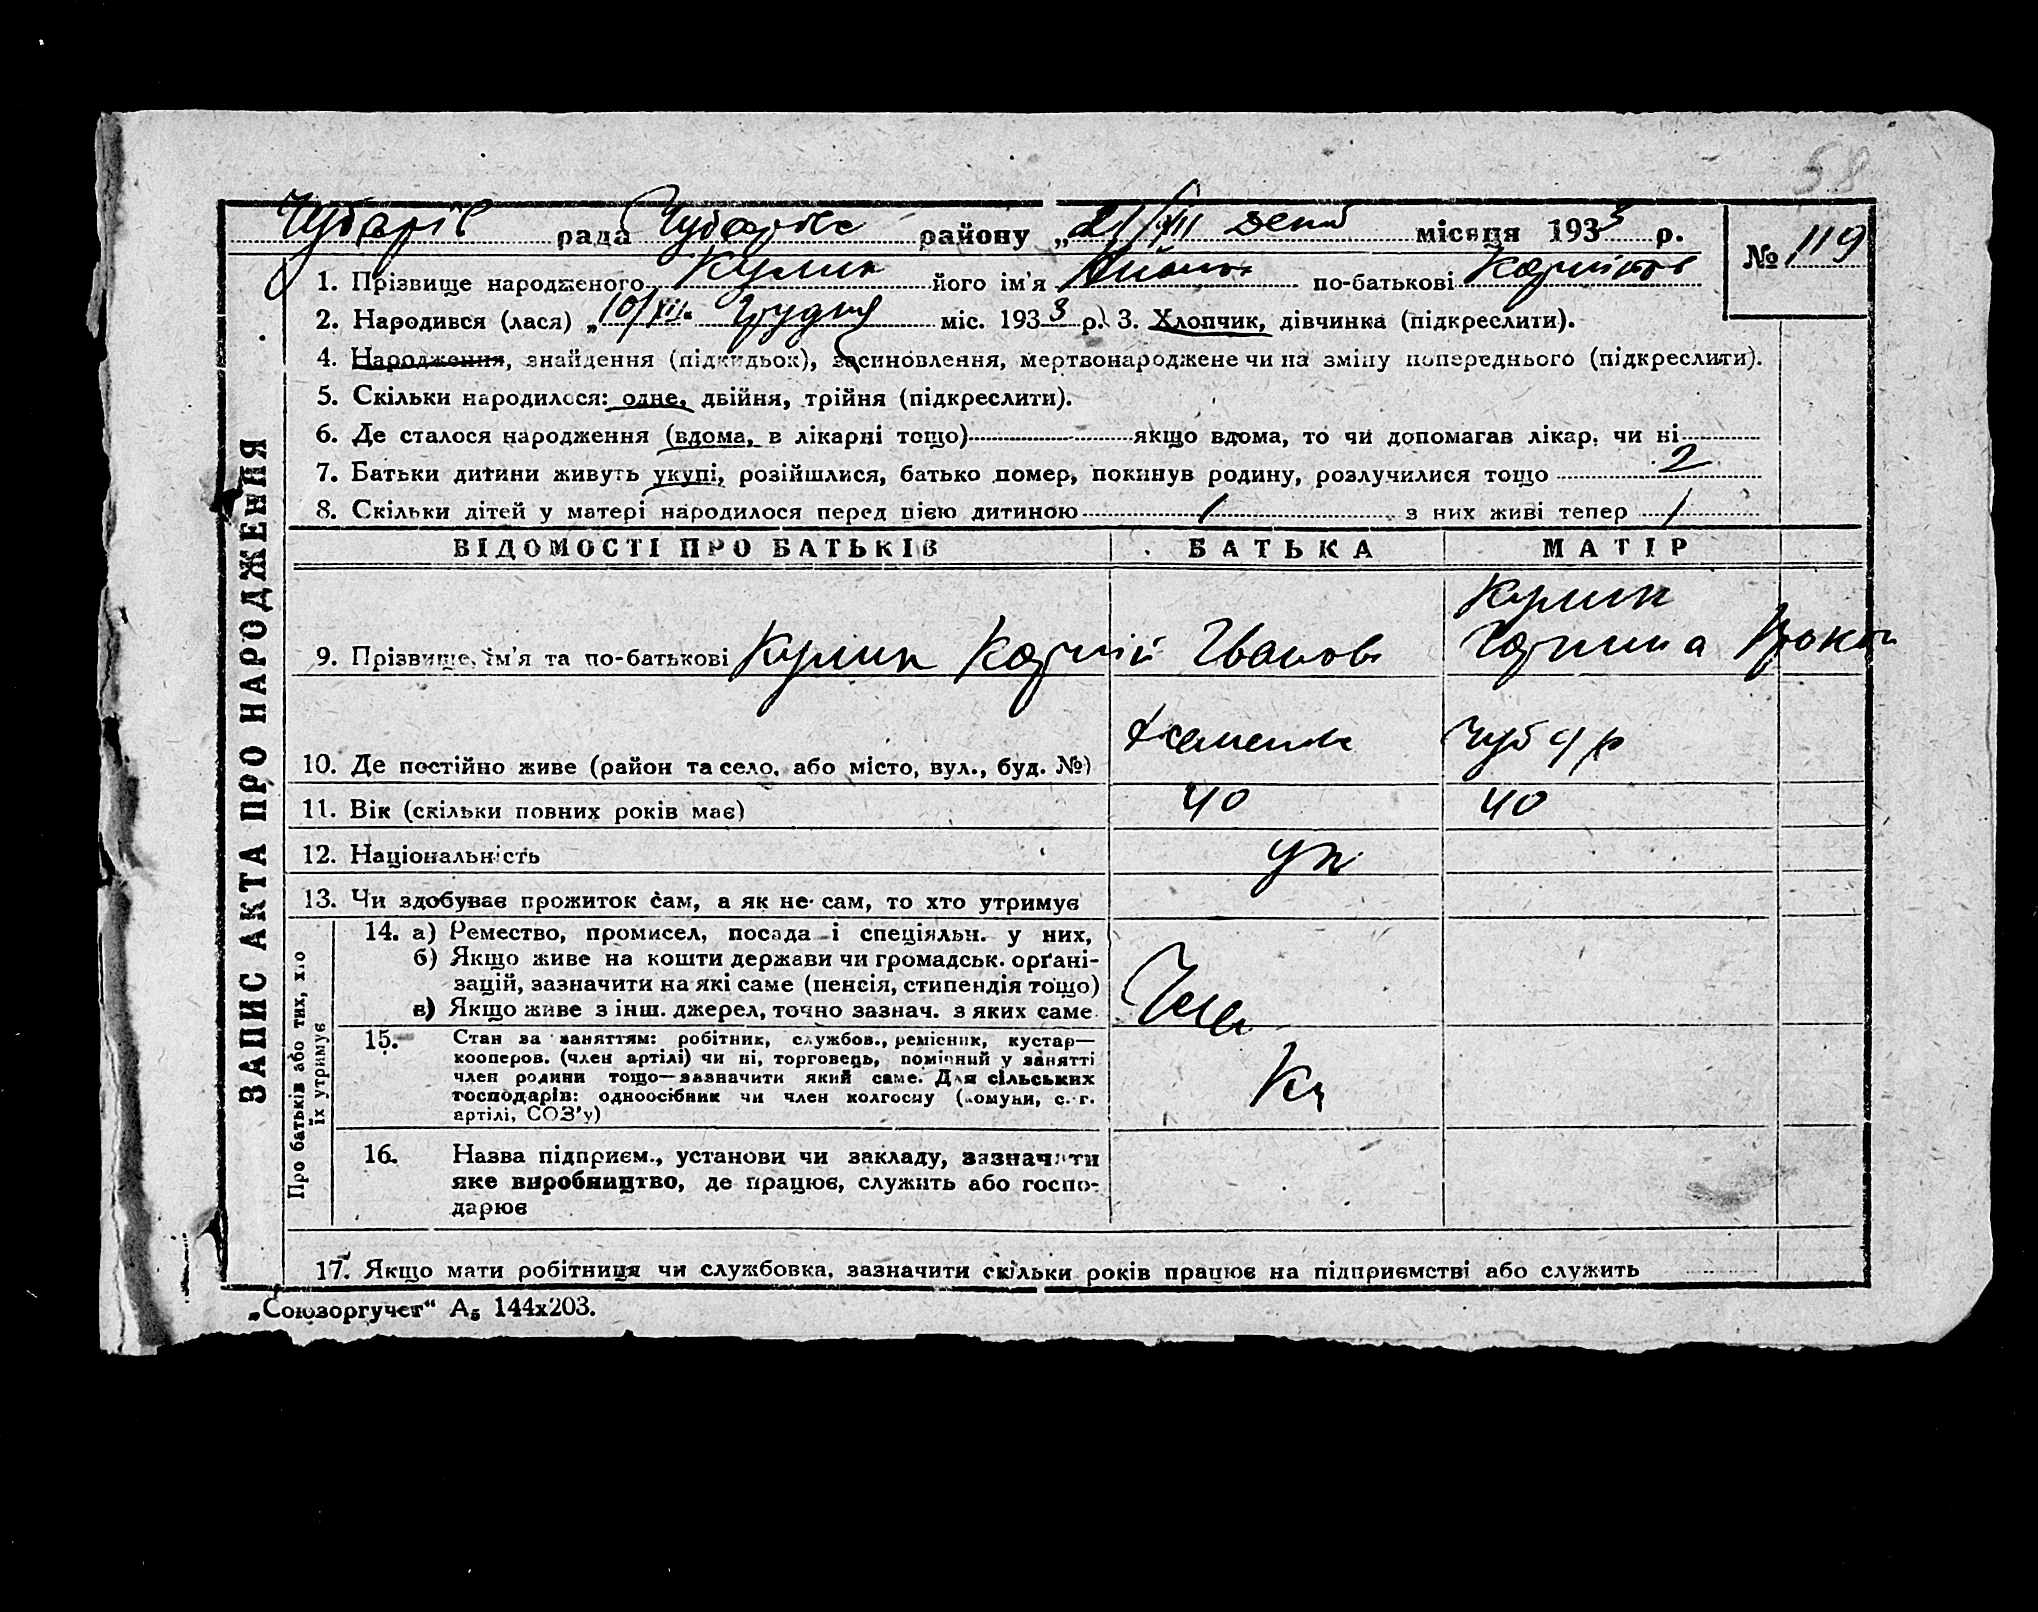 58
Чубарів рада Чубарівс району „21/XII місяця 1933 р. № 119
1. Прізвище народженого Кулик його ім'я по-батькові
2. Народився (лася) „10/XII“ Грудня міс. 1933 р. 3. Хлопчик, дівчинка (підкреслити).
4. Народження, знайдення (підкидьок), засиновлення, мертвонароджене чи на зміну попереднього (підкреслити).
5. Скільки народилося: одне, двійня, трійня (підкреслити).
6. Де сталося народження (вдома, в лікарні тощо) якщо вдома, то чи допомагав лікар, чи ні
7. Батьки дитини живуть укупі, розійшлися, батько помер, покинув родину, розлучилися тощо 2
8. Скільки дітей у матері народилося перед цією дитиною 1 з них живі тепер 1
ЗАПИС АКТА ПРО НАРОДЖЕННЯ
ВІДОМОСТІ ПРО БАТЬКІВ БАТЬКА МАТІР
Кулик
9. Прізвище, ім'я та по-батькові Кулик Корній Іванов
10. Де постійно живе (район та село, або місто, вул., буд. №) Чуб р
11. Вік (скільки повних років має) 40 40
12. Національність ук
13. Чи здобуває прожиток сам, а як не сам, то хто утримує
Про батьків або тих, хто
їх утримує
14. а) Ремество, промисел, посада і спеціяльн. у них,
б) Якщо живе на кошти держави чи громадськ. орґані-
зацій, зазначити на які саме (пенсія, стипендія тощо)
в) Якщо живе з інш. джерел, точно зазнач. з яких саме
15. Стан за заняттям: робітник, службов., ремісник, кустар—
кооперов. (член артілі) чи ні, торговець, помічний у занятті
член родини тощо—зазначити який саме. Для сільських
господарів: одноосібник чи член колгоспу (комуни, с.-г.
артілі, СОЗ'у)
16. Назва підприєм., установи чи закладу, зазначити
яке виробництво, де працює, служить або госпо-
дарює
17. Якщо мати робітниця чи службовка, зазначити скільки років працює на підприємстві або служить
„Союзоргучет“ А5 144х203.